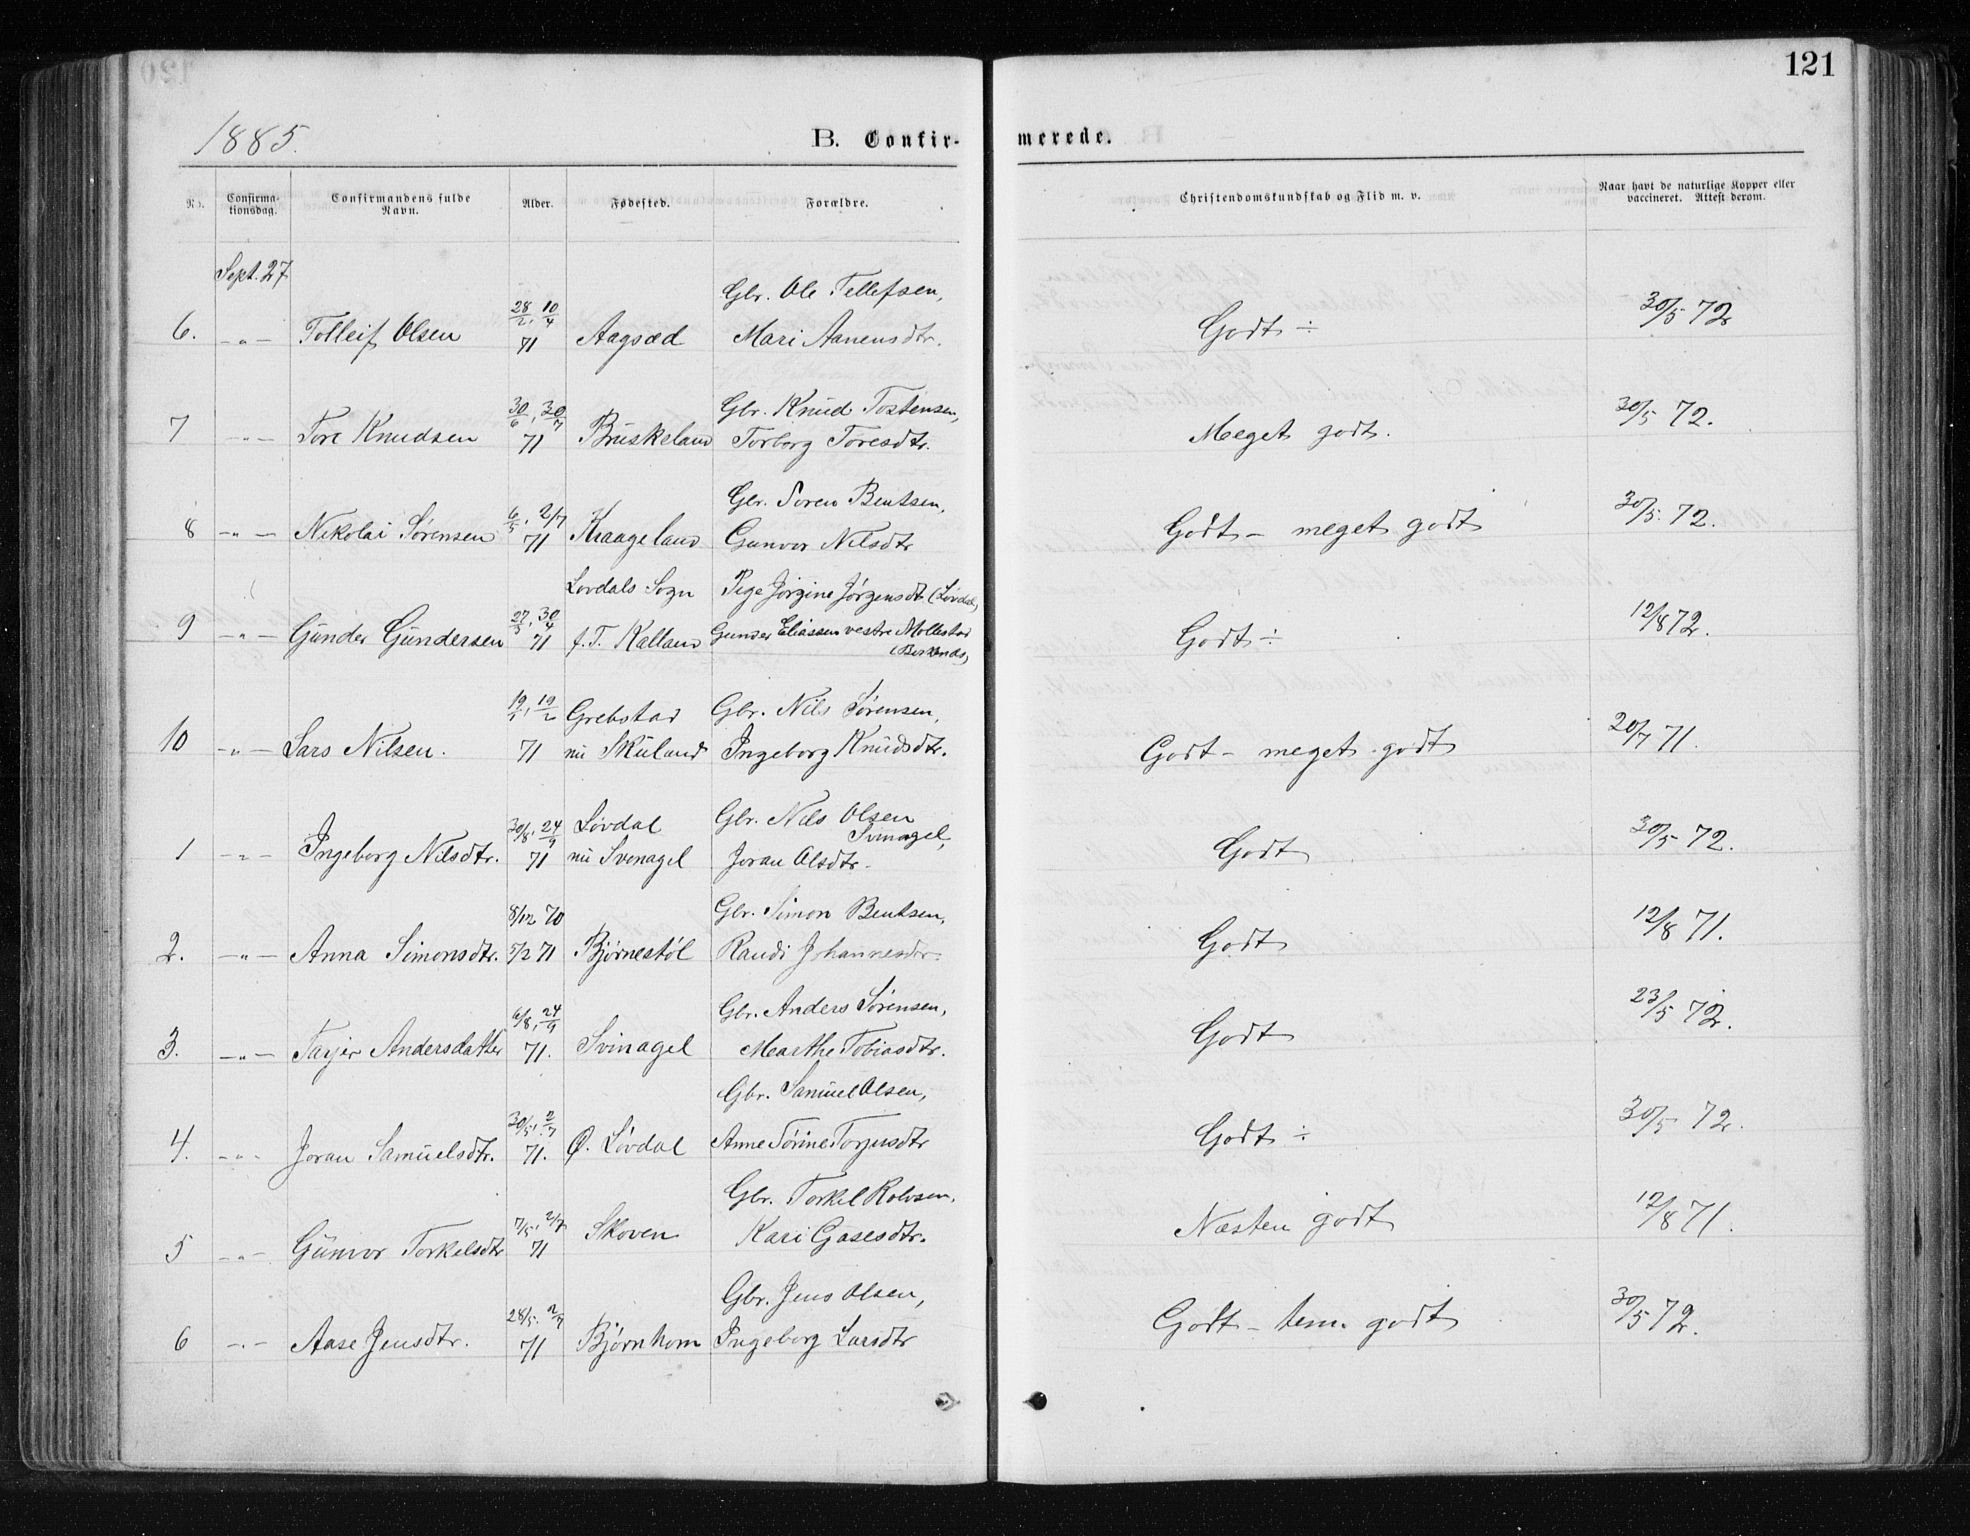 121
1885.
B. Confir-merede.
No. Confirma-tionsdag. Confirmandens fulde Navn. Alder. Fødested. Forældre. Christendomskundskab og Flid m. v. Naar havt de naturlige Kopper eller vaccineret. Attest derom.
Sept. 27
Gbr. Ole Tellefsen,
28/2, 10/4 30/5 72
6. -„- Tolleif Olsen 71 Aagsæd Mari Aanensdtr. Godt ÷
30/6, 30/7 Gbr. Knud Tostensen,
7 -„- Tore Knudsen 71 Bruskeland Torborg Toresdtr. Meget godt. 30/5 72.
Gbr. Soren Bentsen,
6/5, 2/7
8 -„- Nikolai Sørensen 71 Kraageland Gunvor Nilsdtr Godt - meget godt 30/5. 72.
Lovdals Sogn Pige Jørgine Jørgensdt. (Løvdal)
9 -„- Gunder Gundersen 27/3, 30/4 71 f. T. Kalland Gunder Eliassen vestre Mollestad Godt ÷ 12/8 72.
(Birkends)
19/1, 19/2 Grebstad Gbr. Nils Sørensen,
10 -„- Lars Nilsen. 71 nu Skuland Ingeborg Knudsdtr. Godt - meget godt 20/7 71.
30/8, 24/9 Løvdal Gbr. Nils Olsen
Svinagel,
1 -„- Ingeborg Nilsdtr. 71 nu Svenagel Joran Olsdtr. Godt 30/5 72.
8/12 70 Gbr. Simon Bentsen,
2. -„- Anna Simonsdtr. 5/2 71 Bjørnestøl Randi Johannesdtr. Godt 12/8 71.
6/8, 24/9 Gbr. Anders Sørensen,
3. -„- Tarjer Andersdatter 71. Svinagel Marthe Tobiasdtr. Godt 23/5 72.
Gbr. Samuel Olsen,
30/5, 2/7
4. -„- Joran Samuelsdtr. 71. Ø. Løvdal Anne Tørine Torjusdtr Godt ÷ 30/5 72.
Gbr. Torkel Rolvsen,
7/5, 2/7
5 -„- Gunvor Torkelsdtr 71 Skoven Kari Gasesdtr. Næsten godt 12/8 71.
Gbr. Jens Olsen,
28/5. 2/7
6 -„- Aase Jensdtr. 71 Bjørnhom Ingeborg Larsdtr Godt - tem. godt 30/5 72.